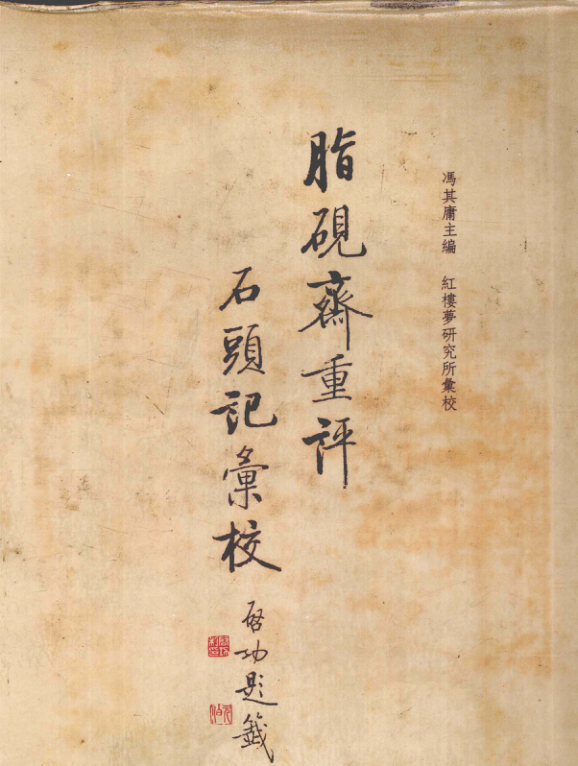 馮其庸主编 紅樓夢研究所彙校
脂硯齋重評
石頭記彙校
啓功題籤